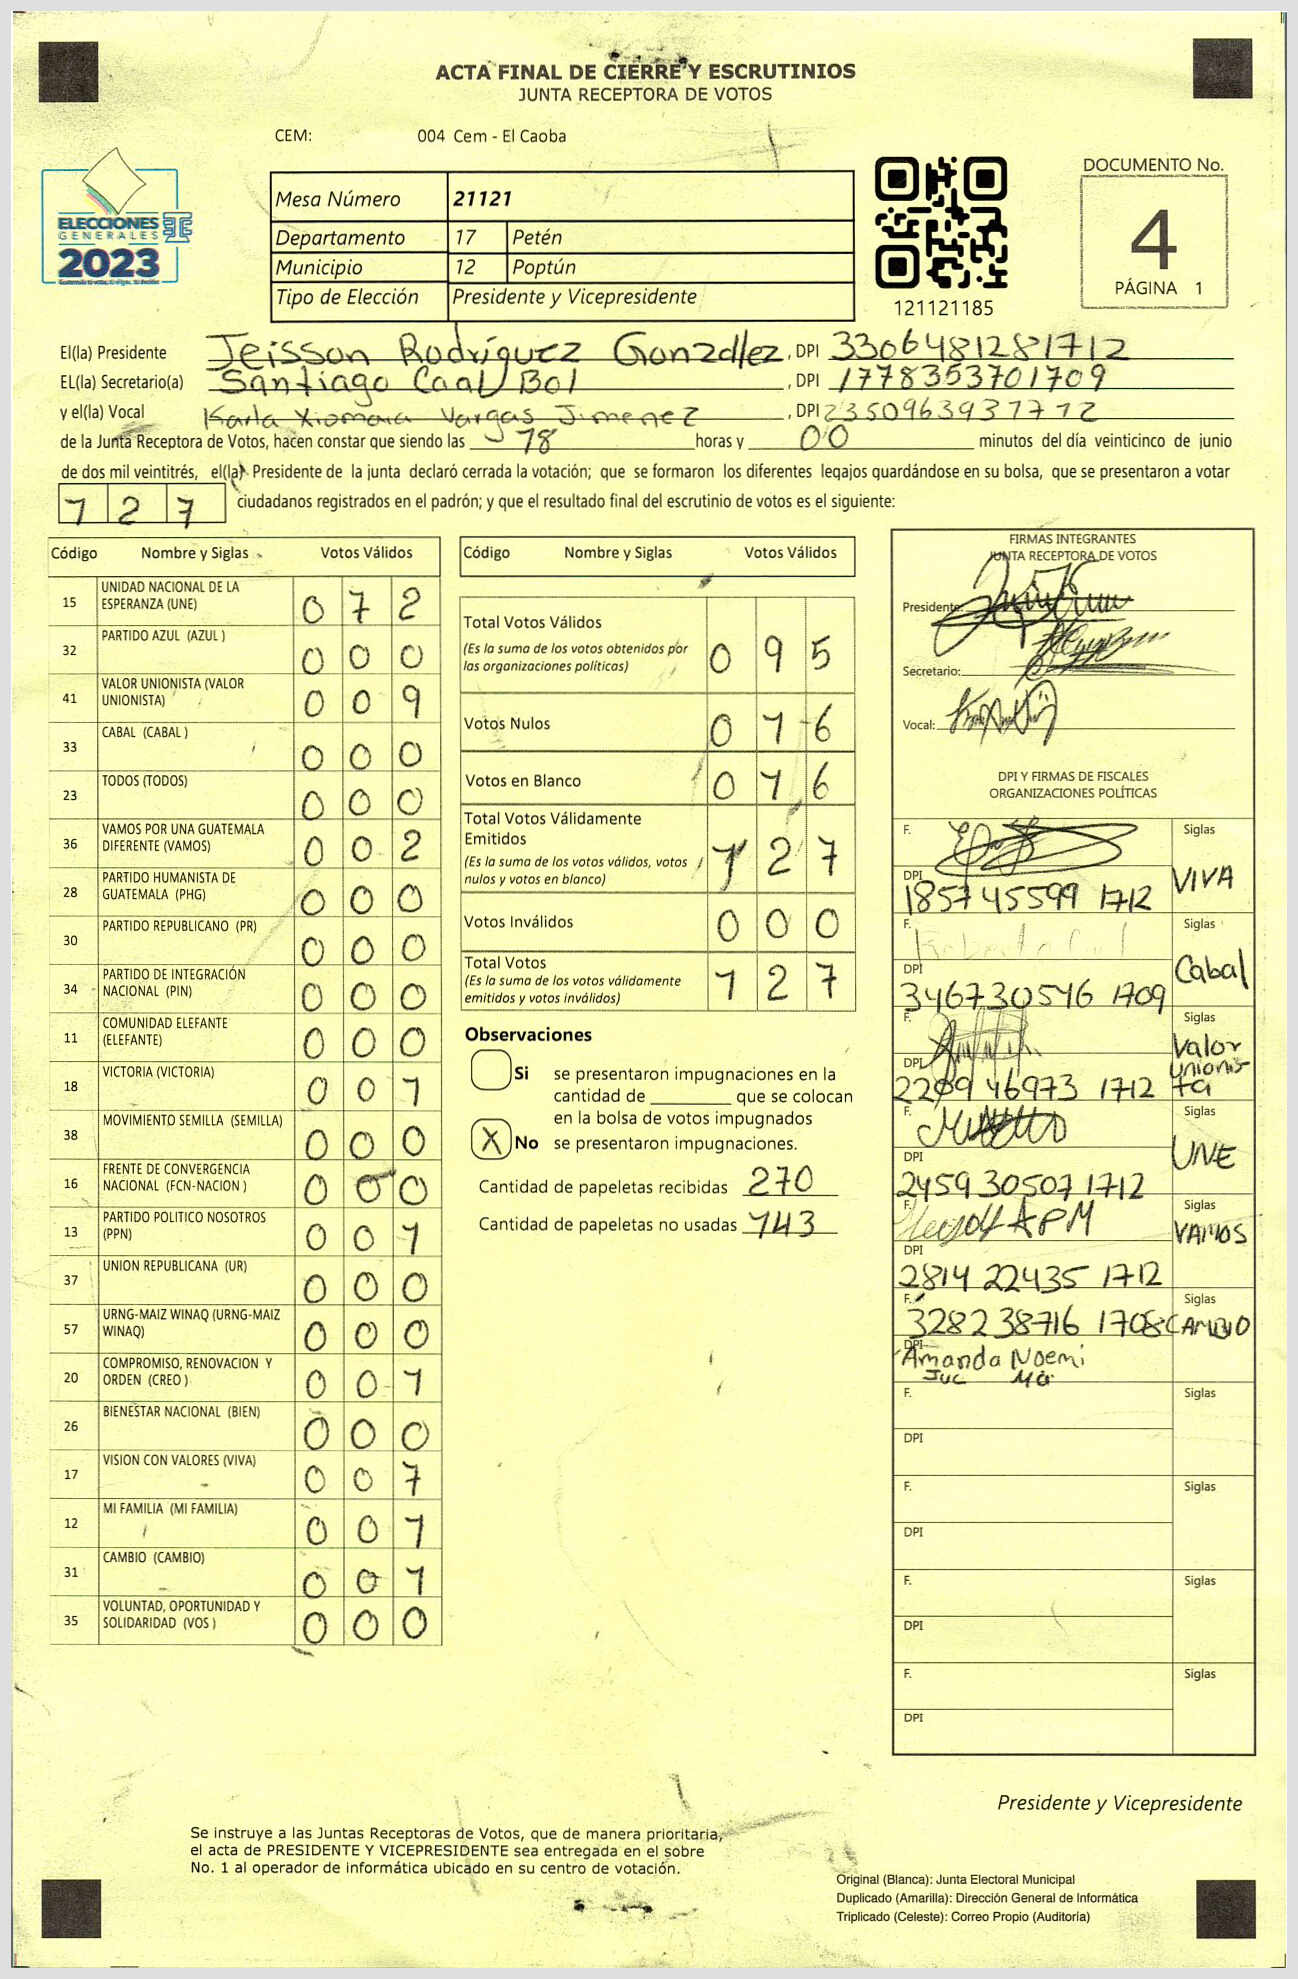 ACTA FINAL DE CIERRE Y ESCRUTINIOS
JUNTA RECEPTORA DE VOTOS
CEM: 004 Cem - El Caoba
ELECCIONES
GENERALES
2023
Mesa Número 21121
Departamento 17 Petén
Municipio 12 Poptún
Tipo de Elección Presidente y Vicepresidente
121121185
DOCUMENTO No.
4
PÁGINA 1
El(la) Presidente Jeisson Rodríguez González, DPI 3306481281712
EL(la) Secretario(a) Santiago Caal Bol, DPI 1778353701709
y el(la) Vocal Karla Xiomara Vargas Jimenez, DPI 2350963931712
de la Junta Receptora de Votos, hacen constar que siendo las 18 horas y 00 minutos del día veinticinco de junio
de dos mil veintitrés, el(la) Presidente de la junta declaró cerrada la votación; que se formaron los diferentes legajos guardándose en su bolsa, que se presentaron a votar
127 ciudadanos registrados en el padrón; y que el resultado final del escrutinio de votos es el siguiente:
Código Nombre y Siglas Votos Válidos
15 UNIDAD NACIONAL DE LA ESPERANZA (UNE) 072
32 PARTIDO AZUL (AZUL ) 000
41 VALOR UNIONISTA (VALOR UNIONISTA) 009
33 CABAL (CABAL ) 000
23 TODOS (TODOS) 000
36 VAMOS POR UNA GUATEMALA DIFERENTE (VAMOS) 002
28 PARTIDO HUMANISTA DE GUATEMALA (PHG) 000
30 PARTIDO REPUBLICANO (PR) 000
34 PARTIDO DE INTEGRACIÓN NACIONAL (PIN) 000
11 COMUNIDAD ELEFANTE (ELEFANTE) 000
18 VICTORIA (VICTORIA) 001
38 MOVIMIENTO SEMILLA (SEMILLA) 000
16 FRENTE DE CONVERGENCIA NACIONAL (FCN-NACION ) 000
13 PARTIDO POLITICO NOSOTROS (PPN) 001
37 UNION REPUBLICANA (UR) 000
57 URNG-MAIZ WINAQ (URNG-MAIZ WINAQ) 000
20 COMPROMISO, RENOVACION Y ORDEN (CREO ) 001
26 BIENESTAR NACIONAL (BIEN) 000
17 VISION CON VALORES (VIVA) 007
12 MI FAMILIA (MI FAMILIA) 001
31 CAMBIO (CAMBIO) 001
35 VOLUNTAD, OPORTUNIDAD Y SOLIDARIDAD (VOS ) 000
Código Nombre y Siglas Votos Válidos
Total Votos Válidos 095
(Es la suma de los votos obtenidos por
las organizaciones políticas)
Votos Nulos 016
Votos en Blanco 016
Total Votos Válidamente
Emitidos 127
(Es la suma de los votos válidos, votos
nulos y votos en blanco)
Votos Inválidos 000
Total Votos 127
(Es la suma de los votos válidamente
emitidos y votos inválidos)
Observaciones
Si se presentaron impugnaciones en la
cantidad de ________ que se colocan
en la bolsa de votos impugnados
X No se presentaron impugnaciones.
Cantidad de papeletas recibidas 270
Cantidad de papeletas no usadas 143
FIRMAS INTEGRANTES
JUNTA RECEPTORA DE VOTOS
Presidente:
Secretario:
Vocal:
DPI Y FIRMAS DE FISCALES
ORGANIZACIONES POLÍTICAS
F. Siglas
DPI 1857 45599 1712 VIVA
F. Siglas
DPI 3467 30546 1709 Cabal
F. Siglas
DPI 2209 46973 1712 Valor Unionista
F. Siglas
DPI 2459 30507 1712 UNE
F. Siglas
DPI 2814 22435 1712 VAMOS
F. Siglas
3282 38716 1708 CAMBIO
DPI Amanda Noemi
F. Siglas
DPI
F. Siglas
DPI
F. Siglas
DPI
F. Siglas
DPI
Presidente y Vicepresidente
Se instruye a las Juntas Receptoras de Votos, que de manera prioritaria,
el acta de PRESIDENTE Y VICEPRESIDENTE sea entregada en el sobre
No. 1 al operador de informática ubicado en su centro de votación.
Original (Blanca): Junta Electoral Municipal
Duplicado (Amarilla): Dirección General de Informática
Triplicado (Celeste): Correo Propio (Auditoría)